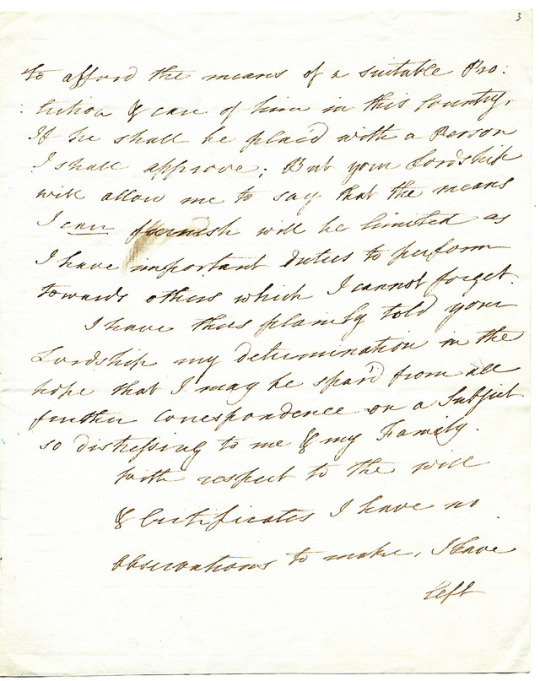 3
to afford the means of a suitable Pro:
:tection & care of him in this Country,
If he shall be plac'd with a Person
I shall approve; But your Lordship
will allow me to say that the means
I can furnish will be limited as
I have important duties to perform
towards others which I cannot forget.
I have thus plainly told your
Lordship my determination in the
hope that I may be spar'd from all
further Correspondence on a Subject
so distressing to me & my Family.
With respect to the will
& Certificates I have no
observations to make, I have
Left